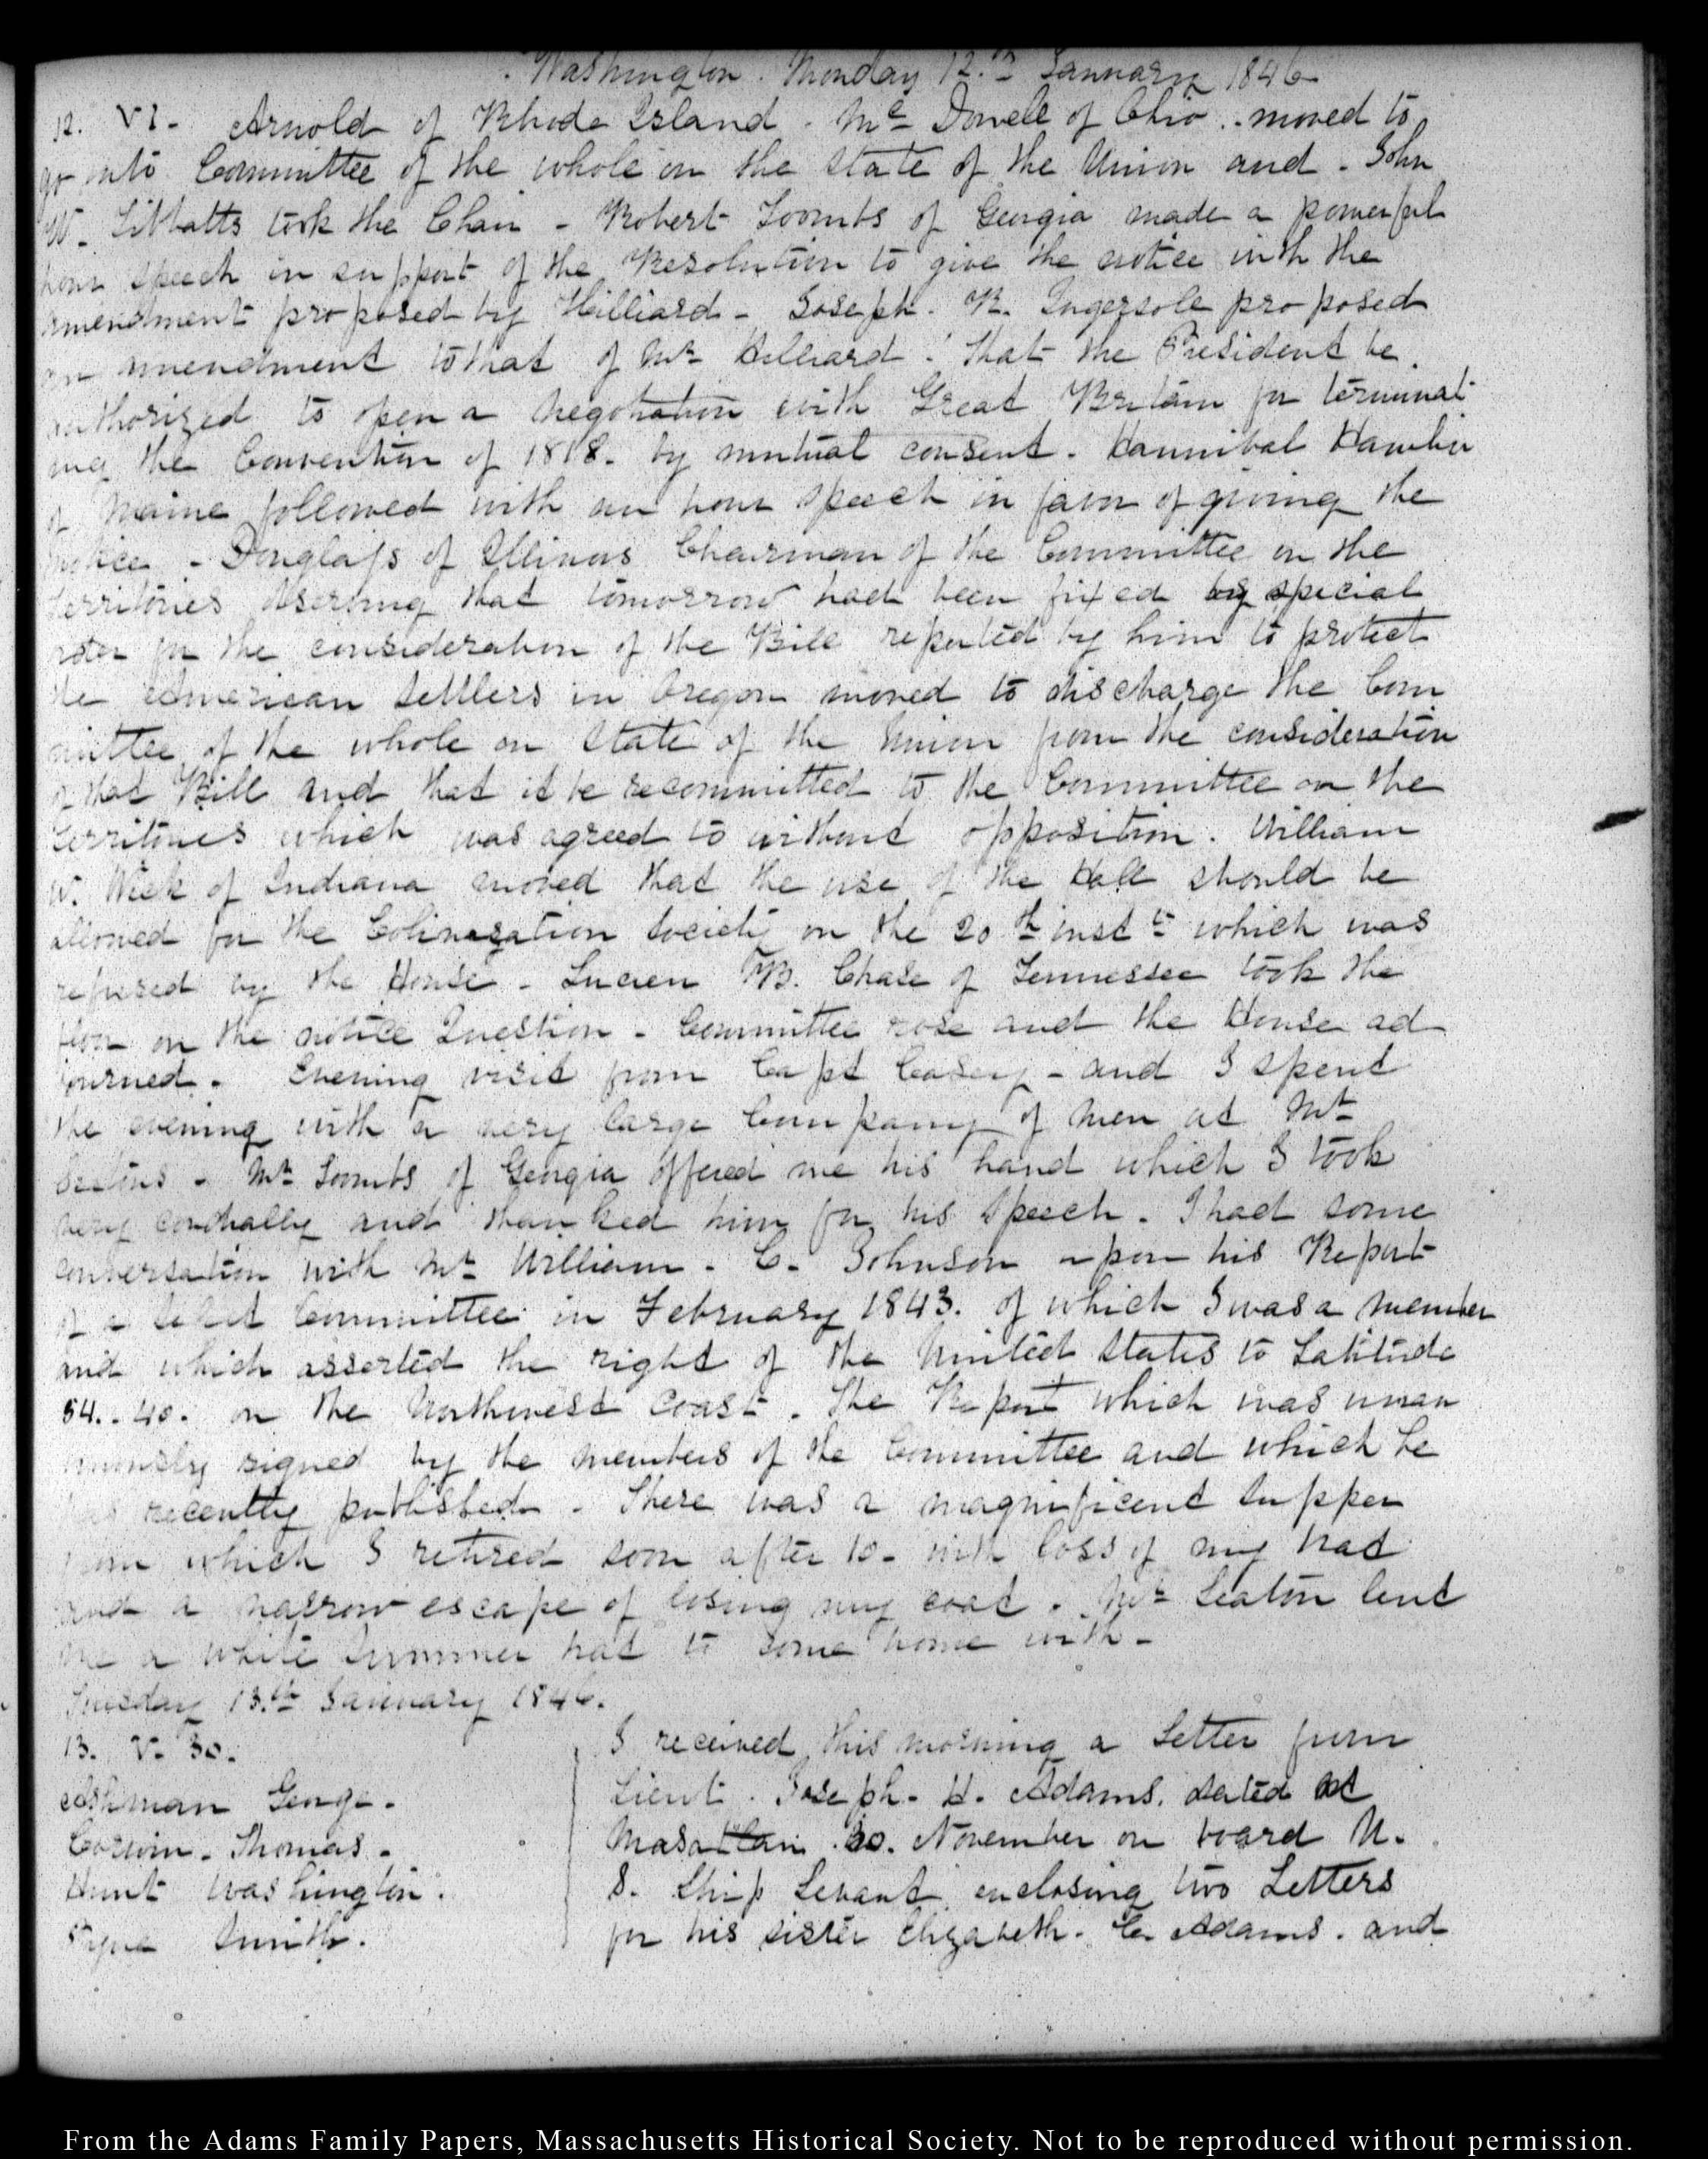 Washington. Monday 12.th January 1846
12. VI. Arnold of Rhode Island. Mc Dowell of Ohio.. moved to
go into Committee of the whole on the state of the Union and. John
W. Tibbatts took the Chair - Robert Toombs of Georgia made a powerful
hour speech in support of the Resolution to give the notice with the
amendment proposed by Hilliard - Joseph. R. Ingersoll proposed
an amendment to that of Mr Hilliard. That the President be
authorized to open a negotiation with Great Britain for terminat
ing the Convention of 1818. by mutual consent. Hannibal Hamlin
of Maine followed with an hour speech in favor of giving the
notice - Douglass of Illinois Chairman of the Committee on the
Territories observing that tomorrow had been fixed by special
order for the consideration of the Bill reported by him to protect
the American settlers in Oregon moved to discharge the Com
mittee of the whole on State of the Union from the consideration
of that Bill and that it be recommitted to the Committee on the
Territories which was agreed to without opposition. William
W. Wick of Indiana moved that the use of the Hall should be
allowed for the Colinazation Society on the 20th instt which was
refused by the House - Lucien B. Chase of Tennessee took the
floor on the notice Question - Committee rose and the House ad
journed. Evening visit from Capt Casey - and I spent
the evening with a very large Company of men at Mr
Seatons - Mr Toombs of Georgia offered me his hand which I took
very cordially and thanked him for his speech. I had some
conversation with Mr William. C. Johnson upon his Report
of a select Committee in February 1843. of which I was a member
and which asserted the right of the United States to Latitude
54..40. on the Northwest Coast. The Report which was unan
imously signed by the members of the Committee and which he
has recently published. There was a magnificent supper
from which I retired soon after 10- with loss of my hat
and a narrow escape of losing my coat. Mr Seaton lent
me a white summer hat to come home with-
Tuesday 13.th January 1846.
13. V. 30.
Ashman George.
Corwin. Thomas.
Hunt Washington.
Smith.
I received this morning a Letter from
Lieut. Joseph. H. Adams. dated at
Masatlan 30. November on board U.
S. Ship Levant enclosing two Letters
for his sister Elizabeth. C. Adams. and
From the Adams Family Papers, Massachusetts Historical Society. Not to be reproduced without permission.